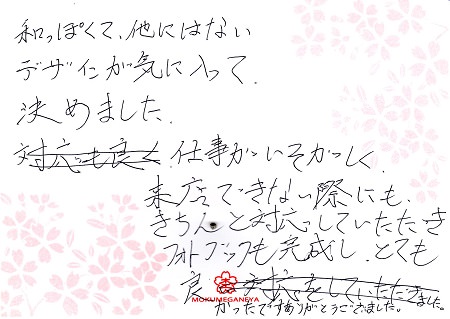 和っぽくて、他にはない
デザインが気に入って、
決めました。
対応も良く 仕事がいそがしく、
来店できない際にも、
きちんと対応していただき
フォトブックも完成し、とても
良い対応をしていただきました。
かったですありがとうございました。
MOKUMEGANEYA